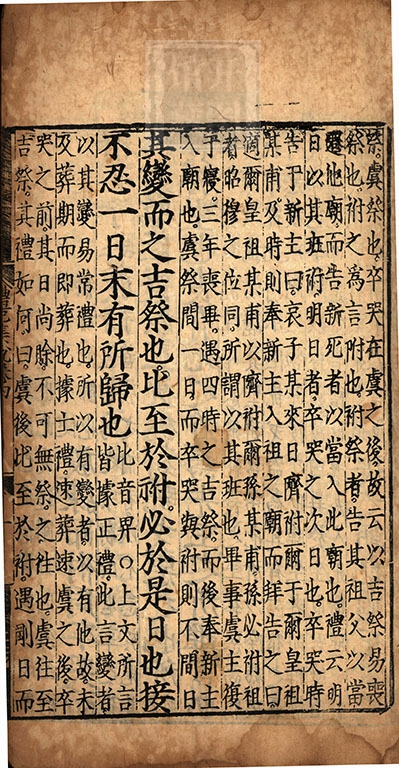 祭虞祭也卒哭在虞之後故云以吉祭易喪
祭也祔之爲言附也祔祭者告其祖父以當
遷他廟而告新死者以當入此廟也禮云明
日以其班祔明日者卒哭之次日也卒哭時
告于新主曰哀子某來日隮祔爾于爾皇祖
某甫及時則奉新主入祖之廟而告之曰
適爾皇祖某甫以隮祔爾孫某甫孫必祔祖
者昭穆之位同所謂以其班也畢事虞主復
于寢三年喪畢遇四時之吉祭而後奉新主
入廟也虞祭間一日而卒哭與祔則不間日
其變而之吉祭也比至於祔必於是日也接
不忍一日末有所歸也
比音界○上文所言
皆據正禮此言變者
以其變易常禮也所以有變者以有他故未
及葬期而即葬也據士禮速葬速虞之後卒
哭之前其日尚賖不可無祭之往也虞往至
吉祭其禮如何曰虞後比至於祔遇剛日而